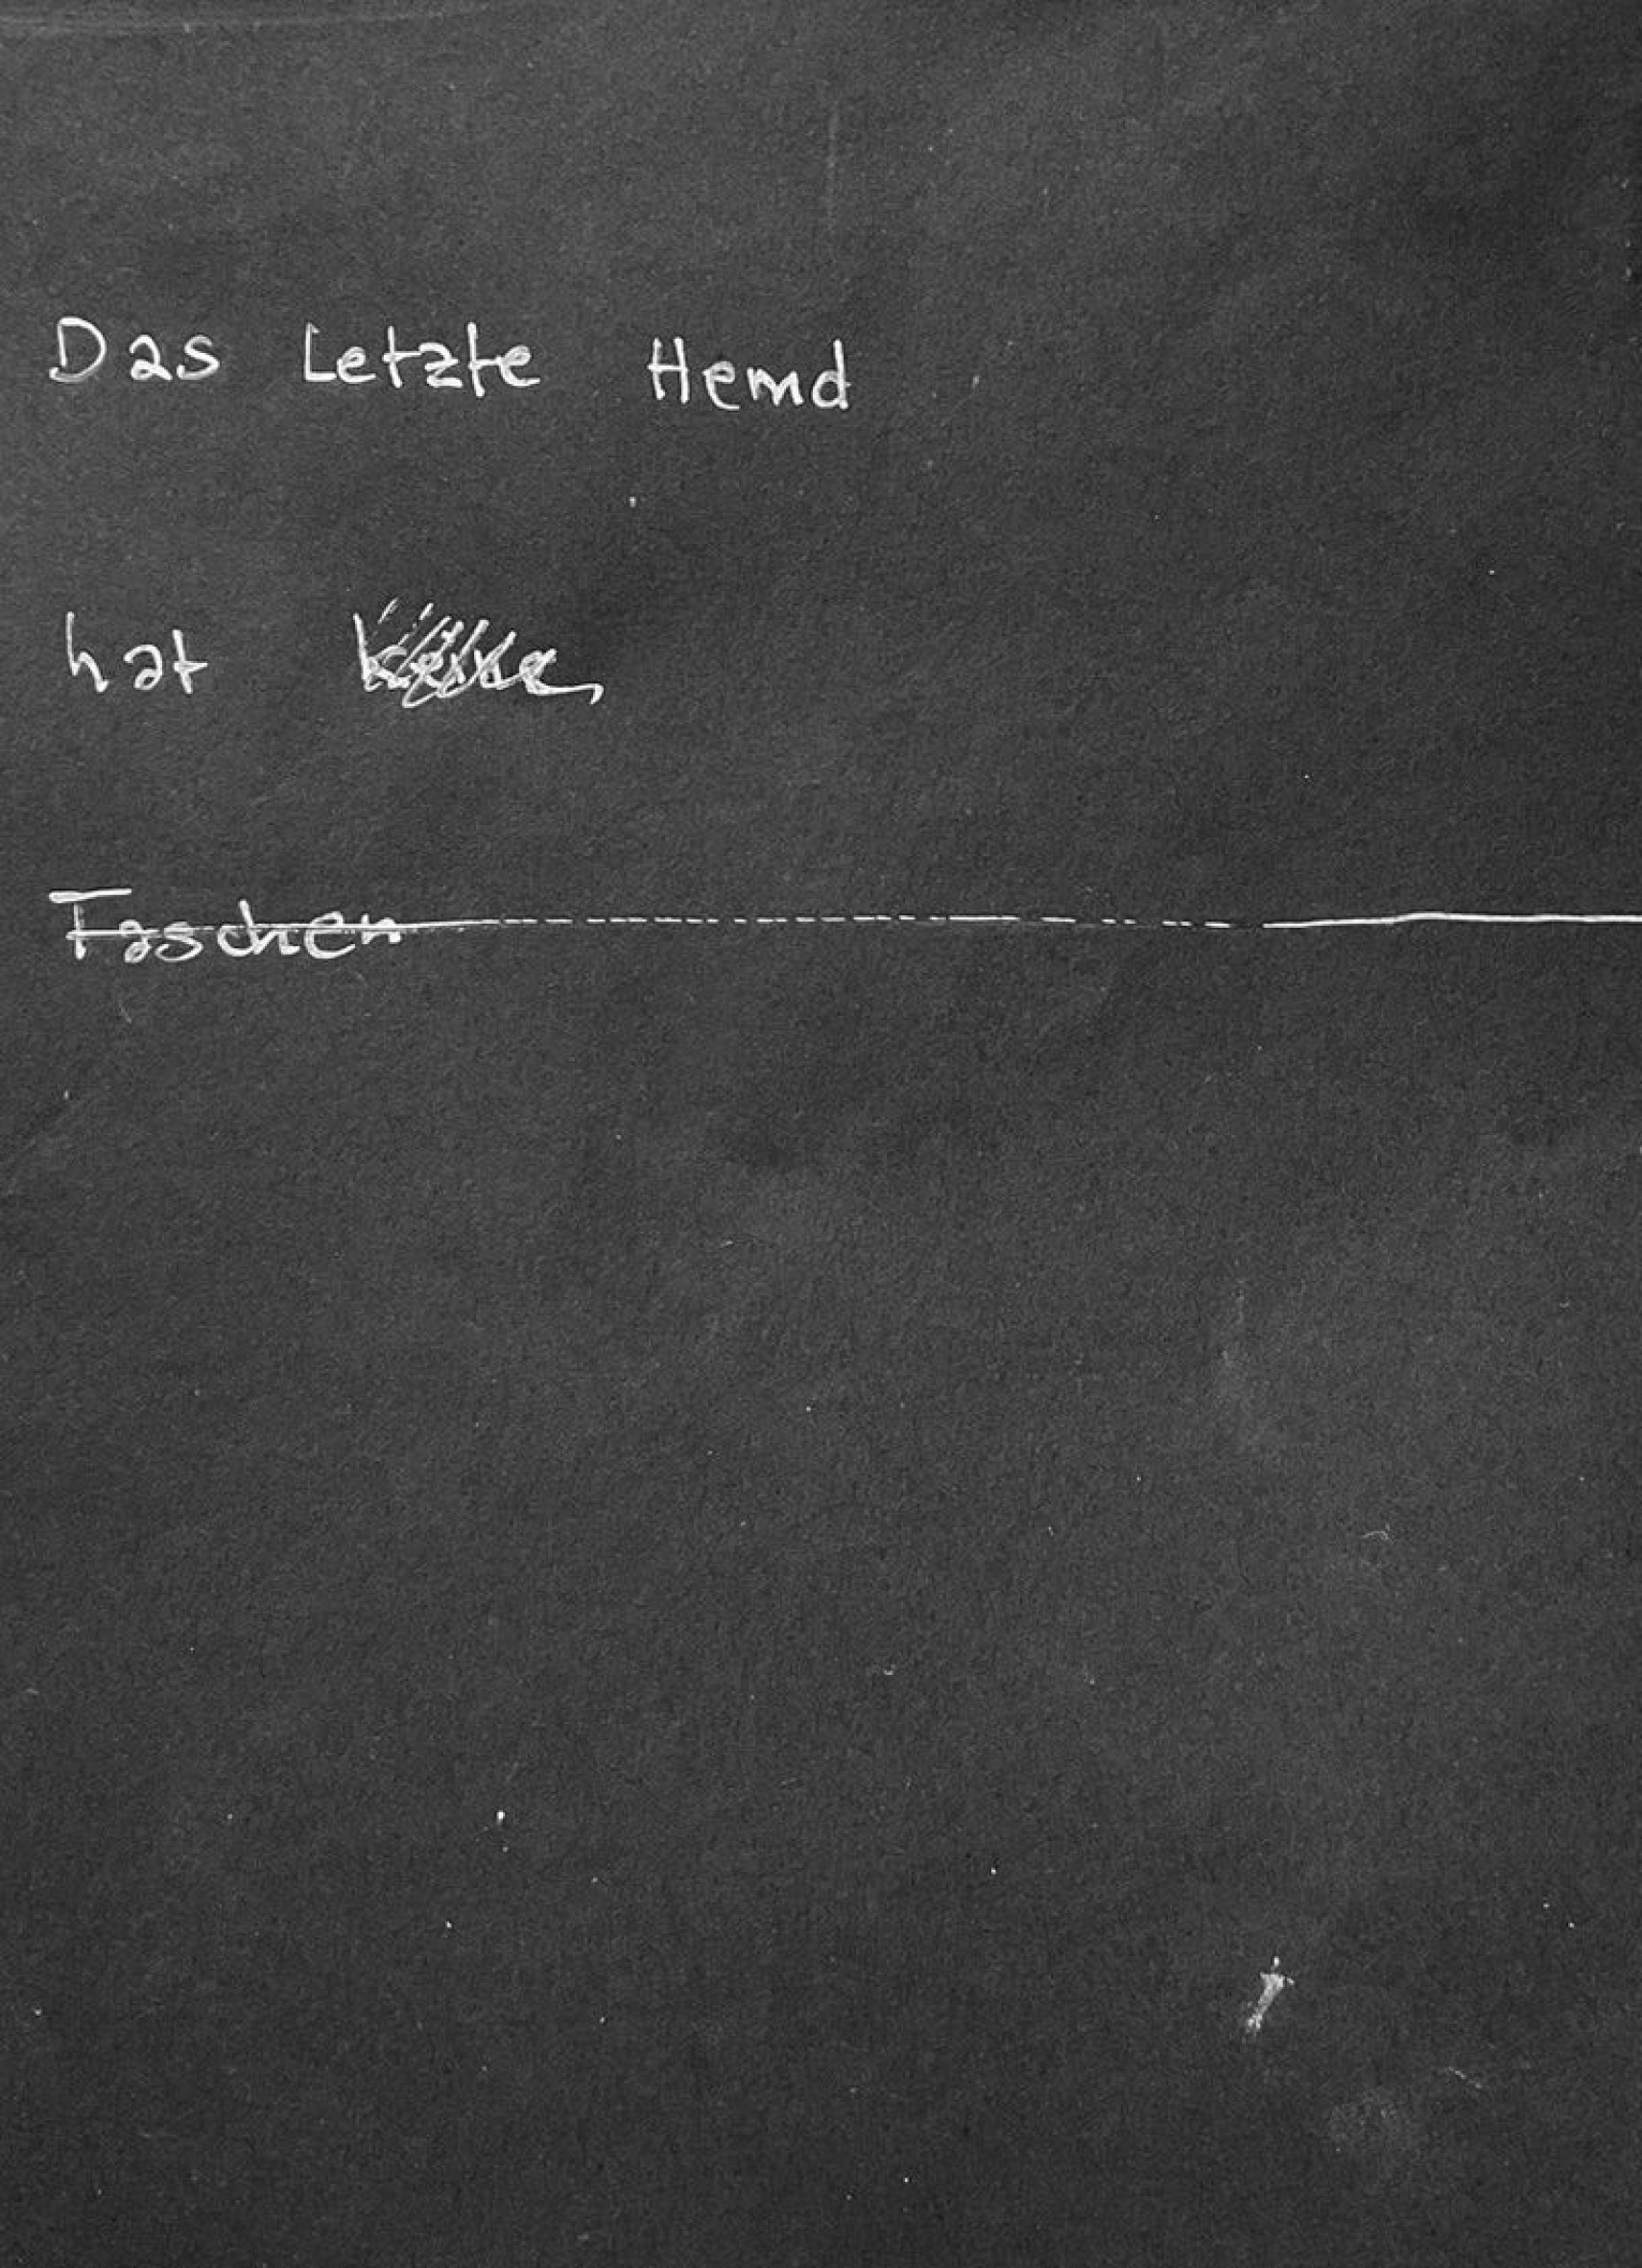 Das Letzte Hemd
hat keine
Taschen